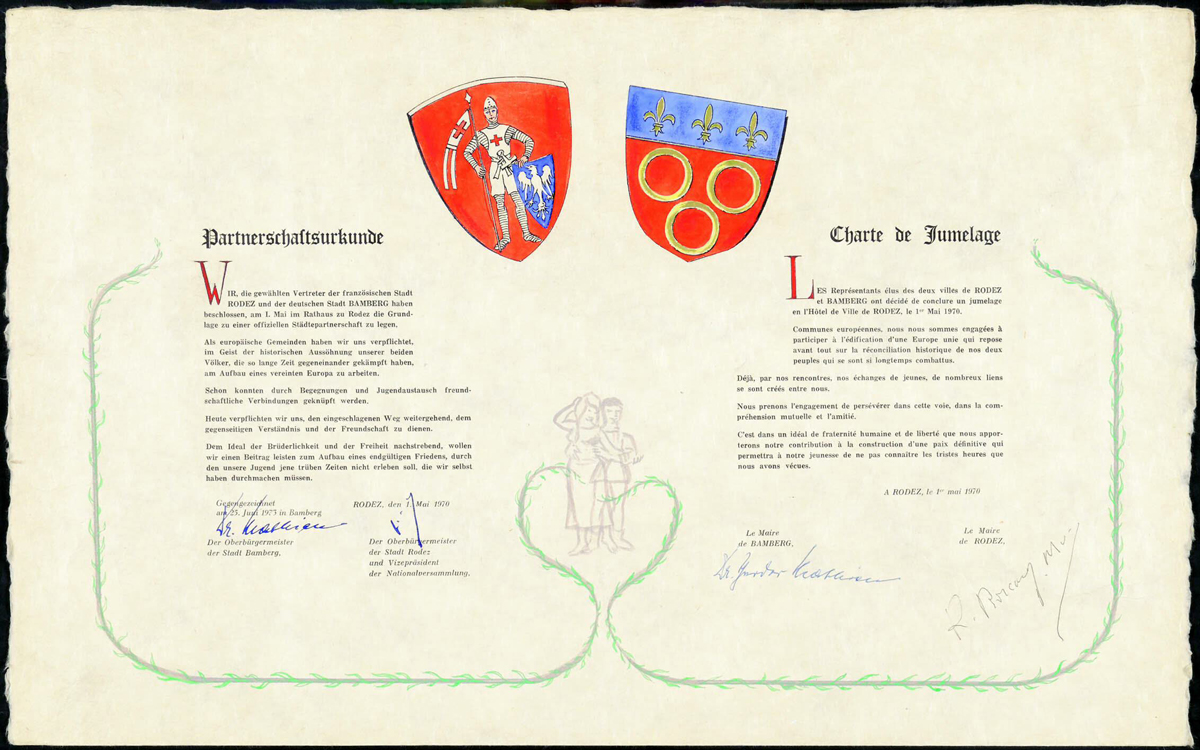 Partnerschaftsurkunde
WIR, die gewählten Vertreter der französischen Stadt
RODEZ und der deutschen Stadt BAMBERG haben
beschlossen, am 1. Mai im Rathaus zu Rodez die Grund-
lage zu einer offiziellen Städtepartnerschaft zu legen.
Als europäische Gemeinden haben wir uns verpflichtet,
im Geist der historischen Aussöhnung unserer beiden
Völker, die so lange Zeit gegeneinander gekämpft haben,
am Aufbau eines vereinten Europa zu arbeiten.
Schon konnten durch Begegnungen und Jugendaustausch freund-
schaftliche Verbindungen geknüpft werden.
Heute verpflichten wir uns, den eingeschlagenen Weg weitergehend, dem
gegenseitigen Verständnis und der Freundschaft zu dienen.
Dem Ideal der Brüderlichkeit und der Freiheit nachstrebend, wollen
wir einen Beitrag leisten zum Aufbau eines endgültigen Friedens, durch
den unsere Jugend jene trüben Zeiten nicht erleben soll, die wir selbst
haben durchmachen müssen.
Gegengezeichnet
am 23. Juni 1973 in Bamberg
Dr.
Der Oberbürgermeister
der Stadt Bamberg.
RODEZ, den 1. Mai 1970
Der Oberbürgermeister
der Stadt Rodez
und Vizepräsident
der Nationalversammlung.
Charte de Jumelage
LES Représentants élus des deux villes de RODEZ
et BAMBERG ont décidé de conclure un jumelage
en l'Hôtel de Ville de RODEZ, le 1er Mai 1970.
Communes européennes, nous nous sommes engagées à
participer à l'édification d'une Europe unie qui repose
avant tout sur la réconciliation historique de nos deux
peuples qui se sont si longtemps combattus.
Déjà, par nos rencontres, nos échanges de jeunes, de nombreux liens
se sont créés entre nous.
Nous prenons l'engagement de persévérer dans cette voie, dans la com-
préhension mutuelle et l'amitié.
C'est dans un idéal de fraternité humaine et de liberté que nous appor-
terons notre contribution à la construction d'une paix définitive qui
permettra à notre jeunesse de ne pas connaître les tristes heures que
nous avons vécues.
A RODEZ, le 1er mai 1970
Le Maire
de BAMBERG,
Dr.
Le Maire
de RODEZ,
R.